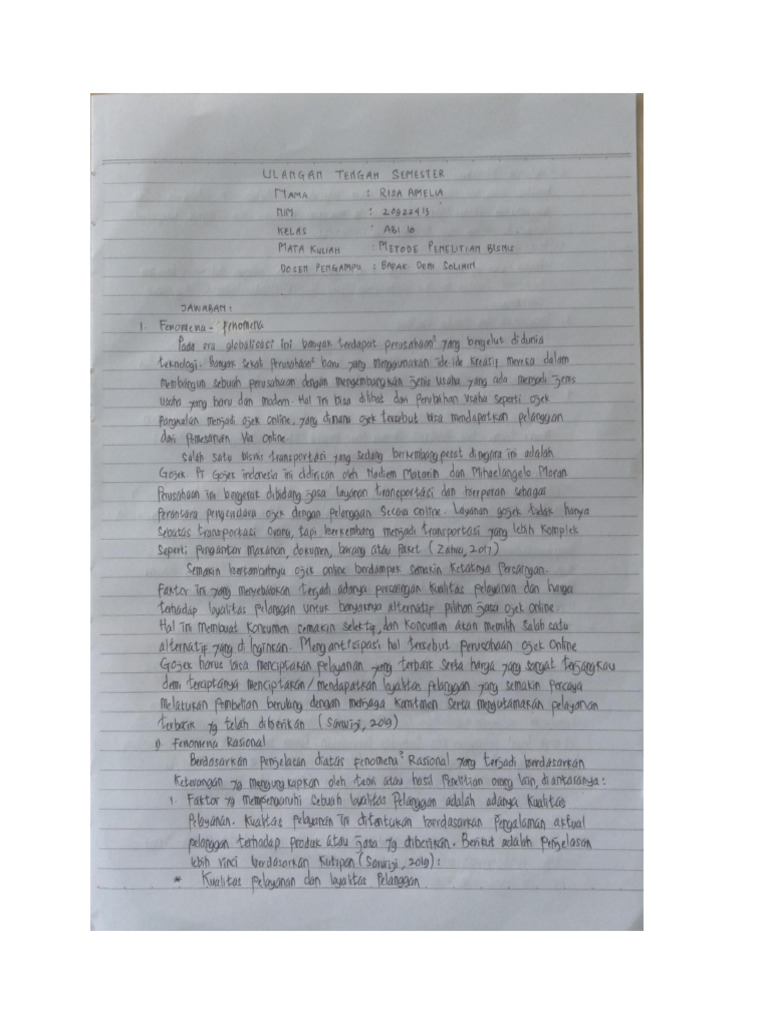 ULANGAN TENGAH SEMESTER
NAMA : RISA AMELIA
NIM : 20622413
KELAS : ABI 10
MATA KULIAH : METODE PENELITIAN BISNIS
DOSEN PENGAMPU : BAPAK DENI SOLIHIN
JAWABAN :
1. Fenomena - Fenomena
Pada era globalisasi ini banyak terdapat perusahaan² yang bergelut didunia
teknologi. Banyak sekali perusahaan² baru yang menggunakan ide-ide kreatif mereka dalam
membangun sebuah perusahaan dengan mengembangkan jenis usaha yang ada menjadi jenis
usaha yang baru dan modern. Hal ini bisa dilihat dari perubahan usaha seperti ojek
pangkalan menjadi ojek online, yang dimana ojek tersebut bisa mendapatkan pelanggan
dari pemesanan via online.
Salah satu bisnis transportasi yang sedang berkembang pesat dinegara ini adalah
Gojek. PT Gojek indonesia ini didirikan oleh Nadiem Makarim dan Mihaelangelo Moran.
Perusahaan ini bergerak dibidang jasa layanan transportasi dan berperan sebagai
perantara pengendara ojek dengan pelanggan secara online. Layanan gojek tidak hanya
sebatas transportasi orang, tapi berkembang menjadi transportasi yang lebih komplek
seperti pengantar makanan, dokumen, barang atau paket ( 2017)
Semakin bertambahnya ojek online berdampak semakin ketatnya persaingan.
Faktor ini yang menyebabkan terjadi adanya persaingan kualitas pelayanan dan harga
terhadap loyalitas pelanggan untuk banyaknya alternatip pilihan jasa ojek online.
Hal ini membuat konsumen semakin selektip, dan konsumen akan memilih salah satu
alternatip yang di inginkan. Mengantisipasi hal tersebut perusahaan ojek online
Gojek harus bisa menciptakan pelayanan yang terbaik serta harga yang sangat terjangkau
demi terciptanya menciptakan / mendapatkan loyalitas pelanggan yang semakin percaya
melakukan pembelian berulang dengan menjaga komitmen serta mengutamakan pelayanan
terbaik yg telah diberikan ( 2019)
1) Fenomena Rasional
Berdasarkan penjelasan diatas fenomena² Rasional yang terjadi berdasarkan
keterangan yg mengungkapkan oleh teori atau hasil penelitian orang lain, diantaranya :
1. Faktor yg mempengaruhi sebuah loyalitas pelanggan adalah adanya kualitas
pelayanan. Kualitas pelayanan ini ditentukan berdasarkan pengalaman aktual
pelanggan terhadap produk atau jasa yg diberikan. Berikut adalah penjelasan
lebih rinci berdasarkan kutipan ( 2019) :
* Kualitas pelayanan dan loyalitas pelanggan